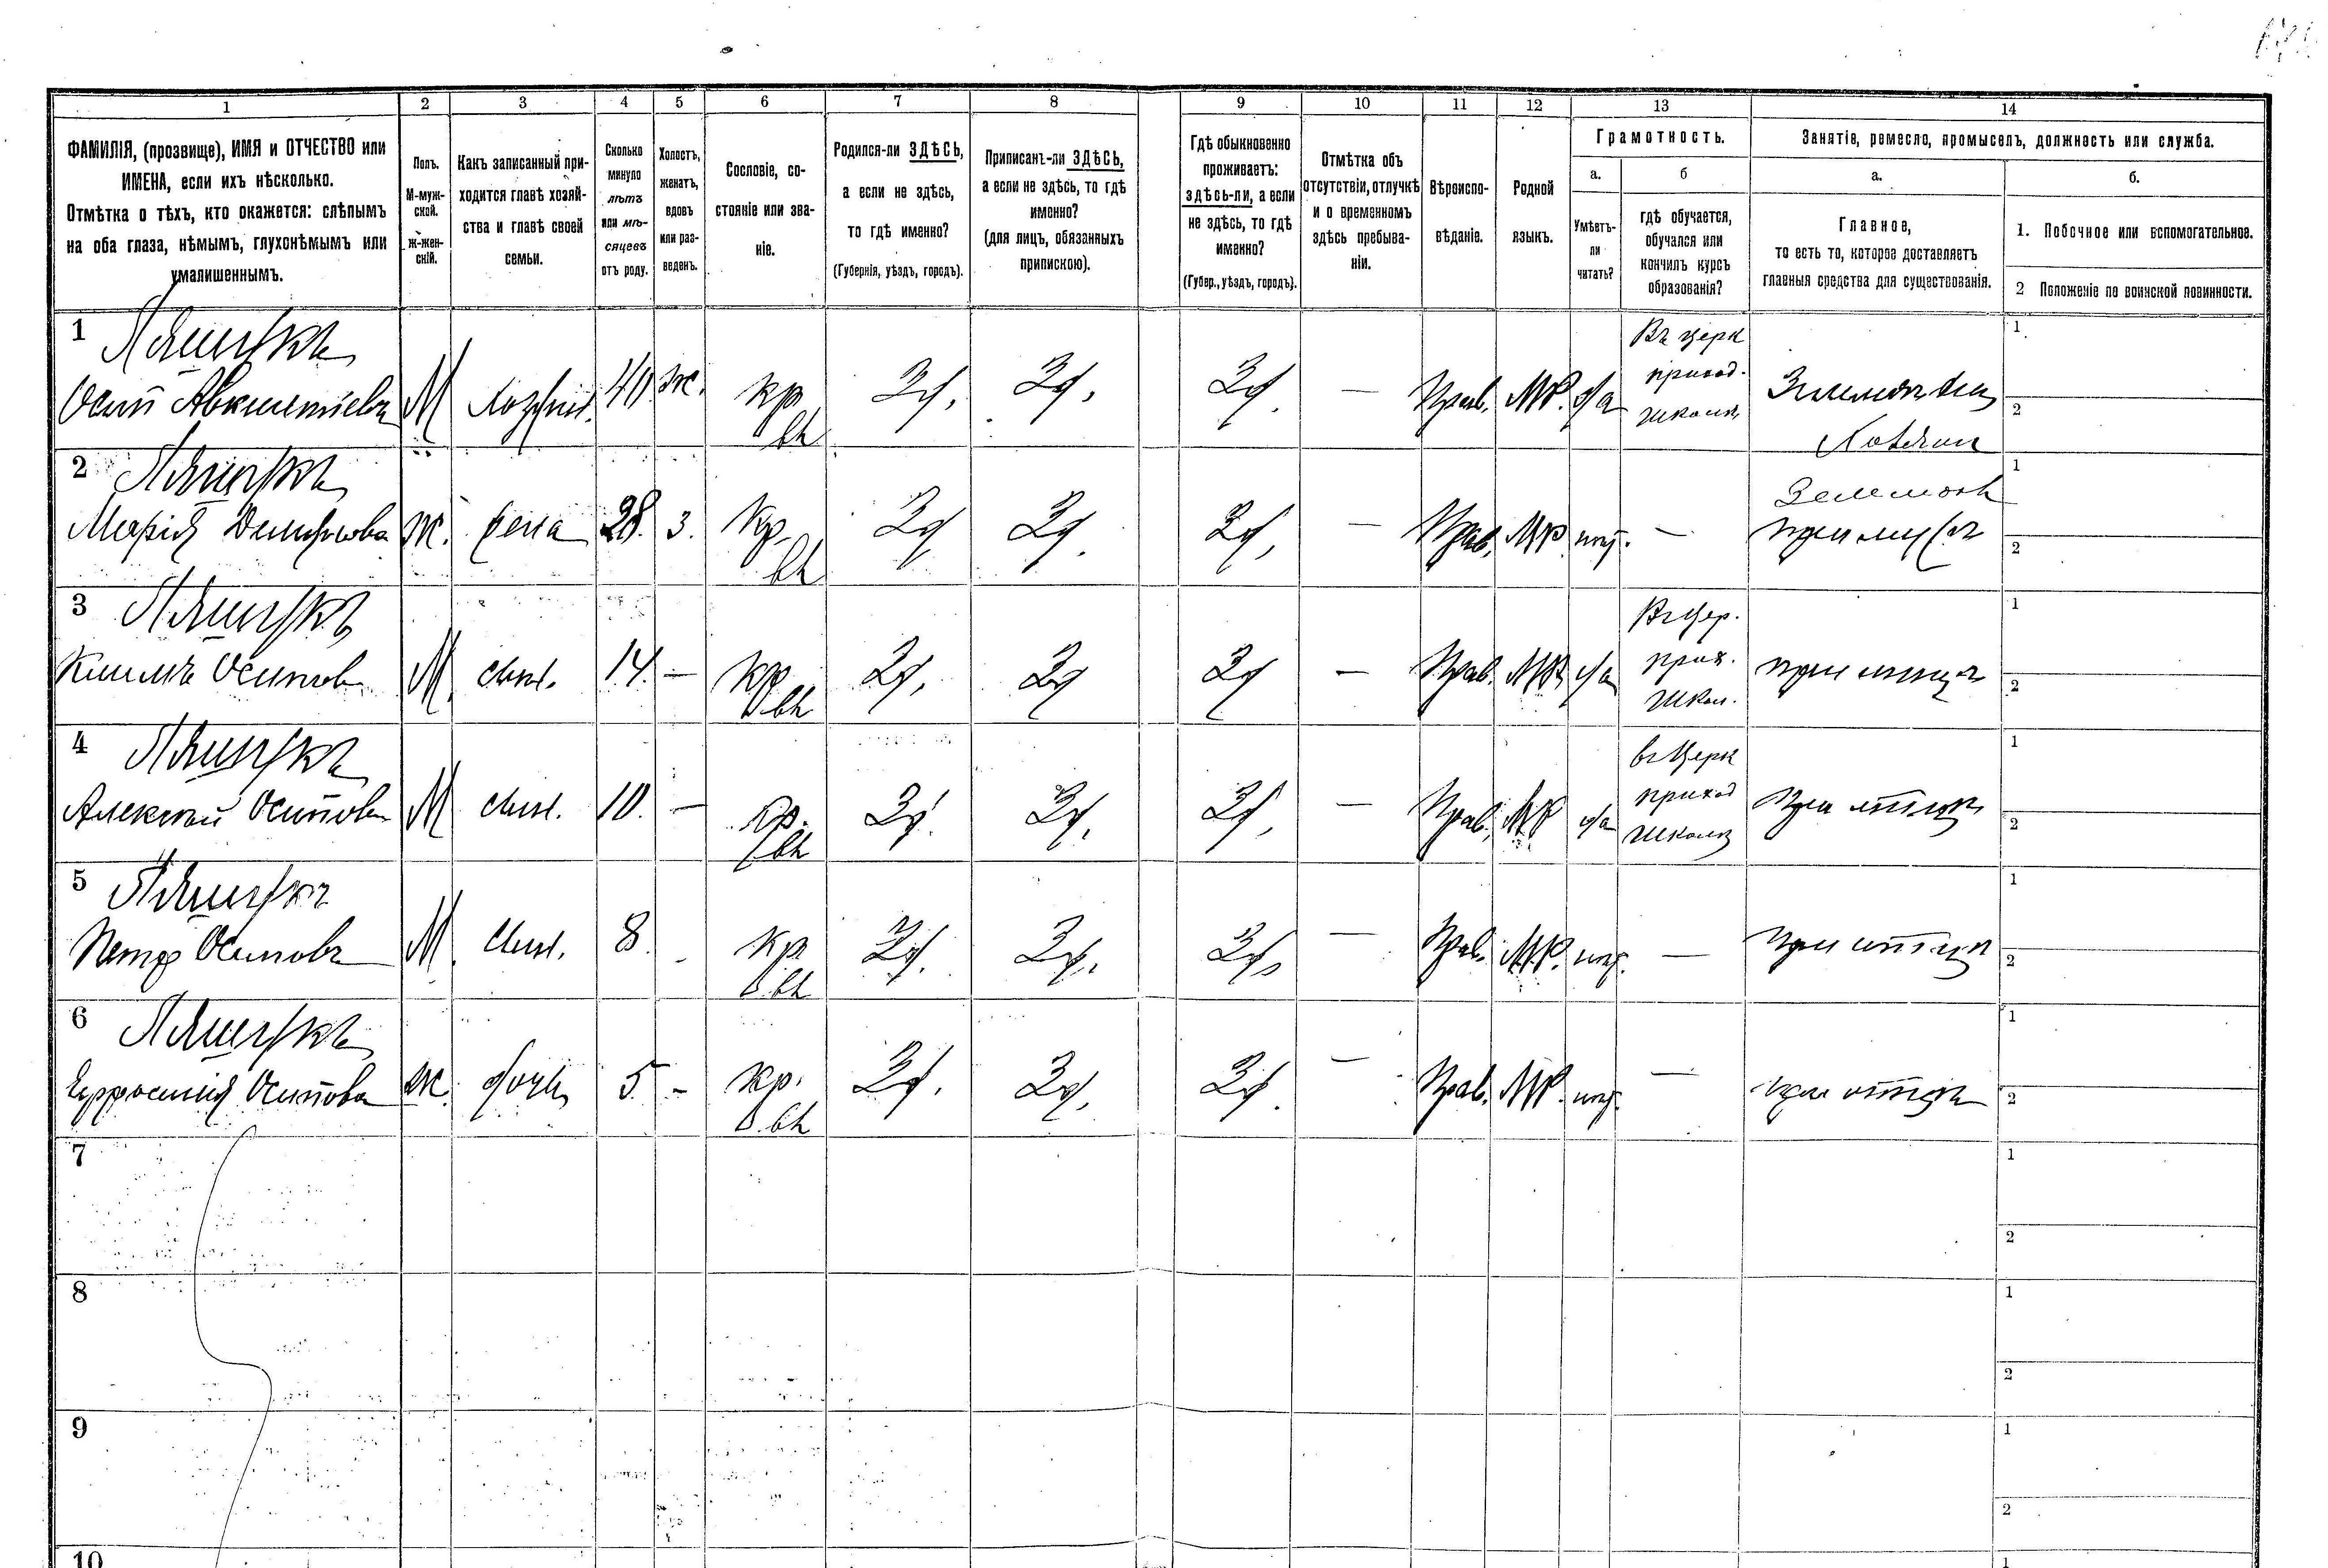 1 2 3 4 5 6 7 8 9 10 11 12 13 14
ФАМИЛІЯ, (прозвище), ИМЯ и ОТЧЕСТВО или
ИМЕНА, если ихъ нѣсколько.
Отмѣтка о тѣхъ, кто окажется: слѣпымъ
на оба глаза, нѣмымъ, глухонѣмымъ или
умалишеннымъ.
Полъ.
М-муж-
ской.
Ж-жен-
скій.
Какъ записанный при-
ходится главѣ хозяй-
ства и главѣ своей
семьи.
Сколько
минуло
лѣтъ
или мѣ-
сяцевъ
отъ роду.
Холостъ,
женатъ,
вдовъ
или раз-
веденъ.
Сословіе, со-
стояніе или зва-
ніе.
Родился-ли ЗДѢСЬ,
а если не здѣсь,
то гдѣ именно?
(Губернія, уѣздъ, городъ).
Приписанъ-ли ЗДѢСЬ,
а если не здѣсь, то гдѣ
именно?
(для лицъ, обязанныхъ
припискою).
Гдѣ обыкновенно
проживаетъ:
здѣсь-ли, а если
не здѣсь, то гдѣ
именно?
(Губер., уѣздъ, городъ).
Отмѣтка объ
отсутствіи, отлучкѣ
и о временномъ
здѣсь пребыва-
ніи.
Вѣроиспо-
вѣданіе.
Родной
языкъ.
Грамотность.
а.
Умѣетъ-
ли
читать?
б
гдѣ обучается,
обучался или
кончилъ курсъ
образованія?
Занятія, ремесло, промыселъ, должность или служба.
а.
Главное,
то есть то, которое доставляетъ
главныя средства для существованія.
б.
1. Побочное или вспомогательное.
2 Положеніе по воинской повинности.
1
Осип М Хозяин 40 ж. кр Зд. Зд. Зд. — Прав. МР. да
Въ церк
приход.
школѣ
1
2
2
Марія ж. жена 28. З. Кр Зд Зд. Зд. — Прав. МР нѣт. —
при мужѣ
1
2
3
Климъ Осиповъ М сын. 14. — Кр Зд. Зд Зд — Прав. МР да
Въ Цер.
прих.
школ.
при отцѣ
1
2
4
Алексѣй Осиповъ М сын. 10. — Кр. Зд. Зд. Зд. — Прав. МР да
въ Церк
приход
школѣ
при отцѣ
1
2
5
Петръ Осиповъ М сын. 8. Кр Зд. Зд. Зд. — Прав. МР. нѣт. —
при отцѣ
1
2
6
Ефросинія Осипова ж. дочь 5 - кр. Зд. Зд. Зд. — Прав. МР. нѣт. —
при отцѣ
1
2
7
1
2
8
1
2
9
1
2
10
1